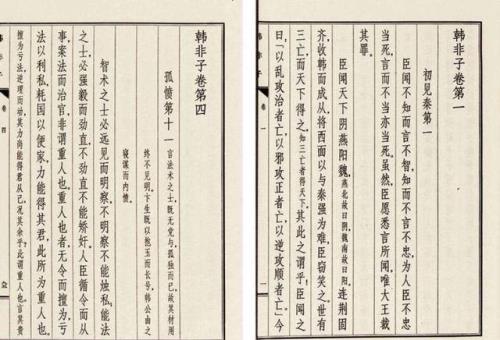 韩非子卷第一
初见秦第一
臣闻不知而言,不智;知而不言,不忠。为人臣不忠,
当死;言而不当,亦当死。虽然,臣愿悉言所闻,唯大王裁
其罪。
臣闻天下阴燕阳魏,燕北故曰阴,魏南故曰阳。连荆固
齐,收韩而成从,将西面以与秦强为难,臣窃笑之。世有
三亡,而天下得之,知三亡者得天下。其此之谓乎!臣闻之
曰:“以乱攻治者亡,以邪攻正者亡,以逆攻顺者亡。”今
韩非子
卷一
一
韩非子卷第四
孤愤第十一 言法术之士,既无党与,孤独而已,故其材用
终不见明。卞生既以抱玉而长号,韩公由之
寝谋而内愤。
智术之士,必远见而明察,不明察,不能烛私;能法
之士,必强毅而劲直,不劲直,不能矫奸。人臣循令而从
事,案法而治官,非谓重人也。重人也者,无令而擅为,亏
法以利私,耗国以便家,力能得其君,此所为重人也。
擅为亏法,逆理而动,其力尚能得君从己,况其余乎!此谓重人也。言其贵
韩非子
卷四